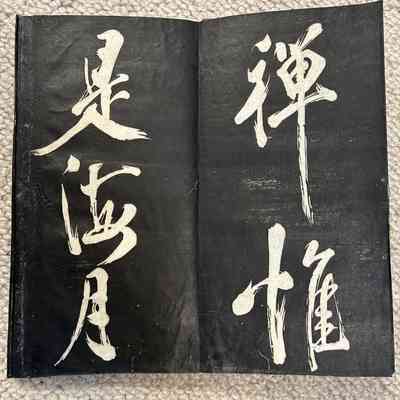 禅惟
是海月